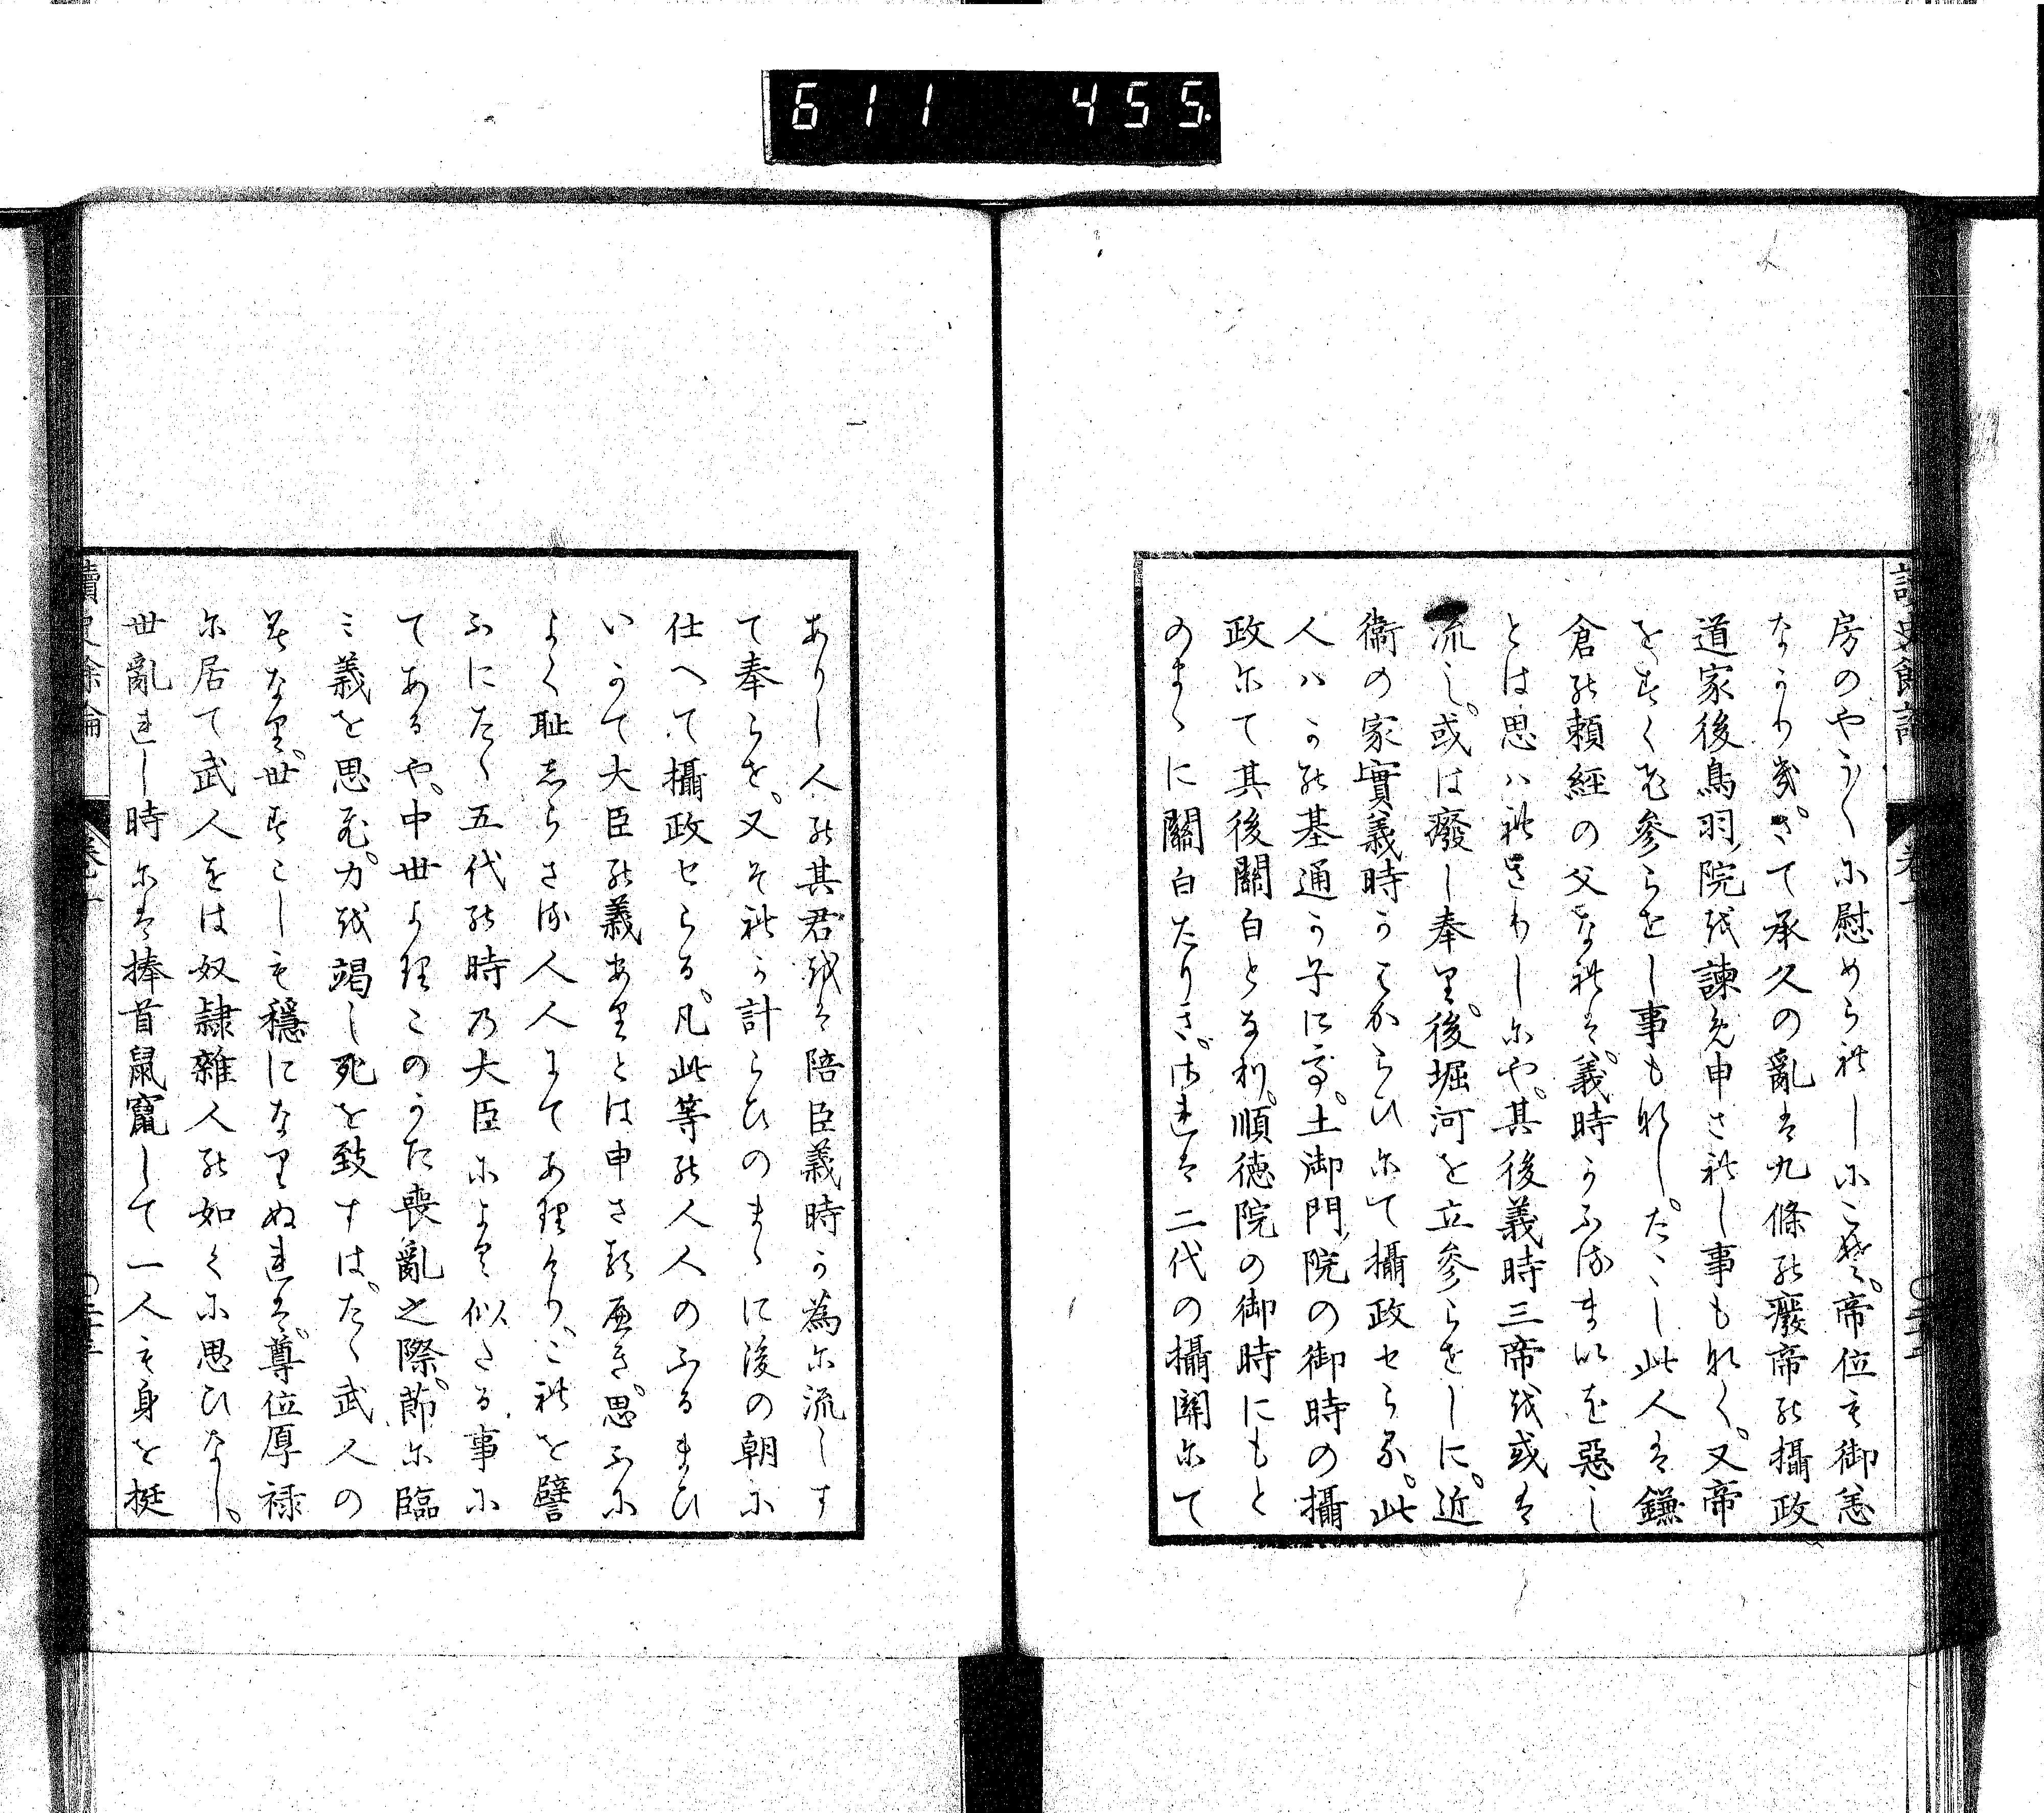 611 455.
房のやう〳〵に慰められしにこそ。帝位も御恙
なかりき。さて承久の亂は九條の癈帝の攝政
道家後鳥羽院を諫め申されし事もなく。又帝
をすくひ參らせし事もなし。たゝし此人は鎌
倉の頼經の父なれは。義時かふるまひを惡し
とは思ハれさりしにや。其後義時三帝を或は
流し。或は癈し奉り。後堀河を立參らせしに。近
衞の家實義時かはからひにて攝政せらる。此
人ハかの基通か子に而。土御門院の御時の攝
政にて其後關白となり。順徳院の御時にもと
のまゝに關白たりき。されは二代の攝關にて
ありし人の其君をは陪臣義時か為に流しす
て奉らせ。又それか計らひのまゝに後の朝に
仕へて攝政せらる。凡此等の人人のふるまひ
いかて大臣の義ありとは申さるへき。思ふに
よく恥しらさる人人にてありけり。これを譬
ふにたゝ五代の時乃大臣によく似たる事に
てあるや。中世よりこのかた喪亂之際。節に臨
ミ義を思ひ。力を竭し死を致すは。たゝ武人の
ミなり。世すこしも穩になりぬれは。尊位厚禄
に居て武人をは奴隷雜人の如くに思ひなし。
世亂れし時には捧首鼠竄して一人も身を挺
讀史餘論